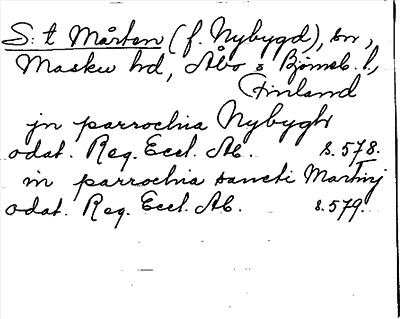 S:t Mårten (f. Nybygd), sn,
Masku hd, Åbo o Björneb. l.,
Finland
jn parrochia Nybyghr
odat. Reg. Eccl. Ab. s. 578.
in parrochia sancti Martinj
odat. Reg. Eccl. Ab. s. 579.